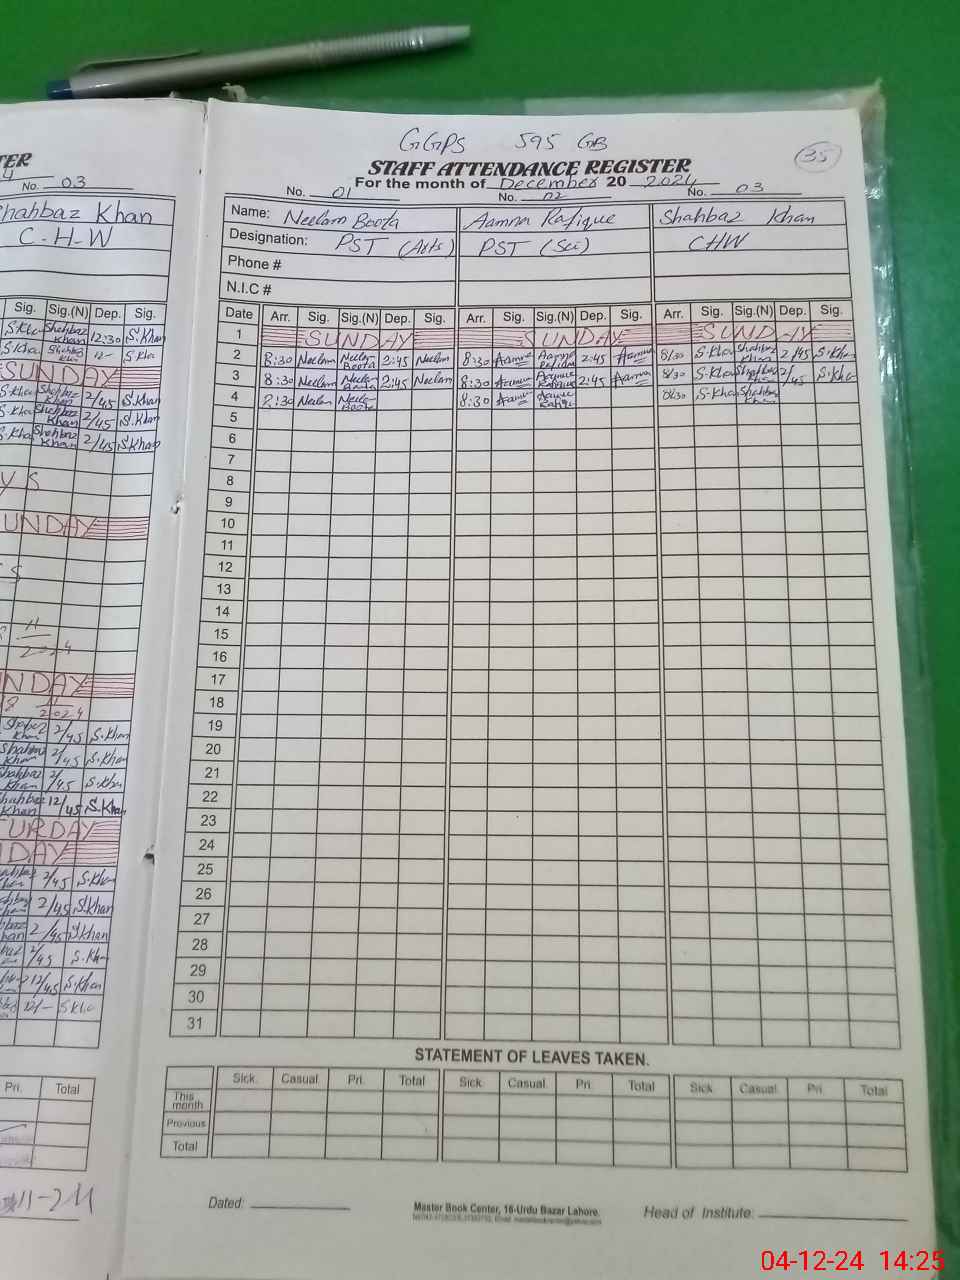 TER
4
No. 03
Shahbaz Khan
C-H-W
Sig. Sig.(N) Dep. Sig.
Shahbaz Khan 12:30 S.Khan
SUNDAY
Shahbaz Khan 2/45 S.Khan
Shahbaz Khan 2/45 S.Khan
Shahbaz Khan 2/45 S.Khan
SUNDAY
11
2024
SUNDAY
11
2024
2/45 S.Khan
2/45 S.Khan
2/45 S.Khan
12/45 S.Khan
TURDAY
DAY
2/45 S.Khan
2/45 S.Khan
2/45 S.Khan
2/45 S.Kh
12/45 S.Khan
Pri. Total
GGPS 595 GB
35
STAFF ATTENDANCE REGISTER
For the month of December 20 2024
No. 01 No. 02 No. 03
Name: Neelam Boota Aamna Rafique Shahbaz Khan
Designation: PST (Arts) PST (Sci) CHW
Phone #
N.I.C #
Date Arr. Sig. Sig.(N) Dep. Sig. Arr. Sig. Sig.(N) Dep. Sig. Arr. Sig. Sig.(N) Dep. Sig.
1 SUNDAY SUNDAY SUNDAY
2 8:30 Neelam Neelam Boota 2:45 Neelam 8:30 Aamna Aamna Rafique 2:45 Aamna 8/30 S-Kha Shahbaz Khan 2/45 S.Kha
3 8:30 Neelam Neelam Boota 2:45 Neelam 8:30 Aamna Aamna Rafique 2:45 Aamna 8/30 S-Khan Shahbaz Khan 2/45 S.Kha
4 8:30 Neelam Neelam Boota 8:30 Aamna Aamna Rafique 8/30 S-Khan Shahbaz Khan
5
6
7
8
9
10
11
12
13
14
15
16
17
18
19
20
21
22
23
24
25
26
27
28
29
30
31
STATEMENT OF LEAVES TAKEN.
Sick. Casual. Pri. Total Sick. Casual. Pri. Total Sick. Casual. Pri. Total
This month
Previous
Total
Dated:
Master Book Center, 16-Urdu Bazar Lahore.
Head of Institute:
04-12-24 14:25